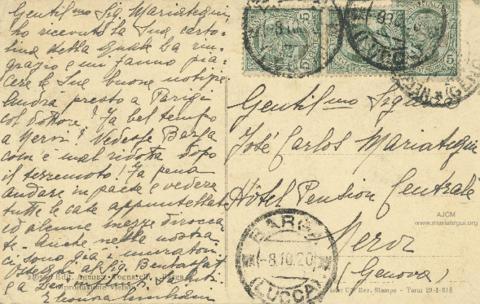 Gentil.mo Sig. Mariategui,
ho ricevuto la Sua carto-
lina della quale La rin-
grazio e mi fanno pia-
cere le Sue buone notizie
Andrà presto a Parigi
col dottore? Fa bel tempo
a Nervi? Vedesse Barga
com'è mal ridotta dopo
il terremoto! Fa pena
andare in paese e vedere
tutte le case appuntellate
ed alcune mezze diroccate
Anche nella nostra
ci sono già i muratori
Gentil.mo Sig.
José Carlos Mariategui
Hôtel Pension Centrale
Nervi
(Genova)
BARGA
-8.10.20
(LUCCA)
AJCM
www.mariategui.org